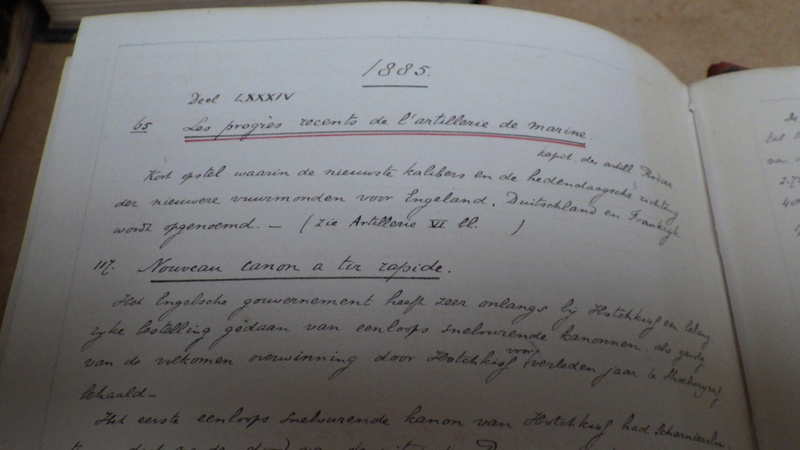 1885.
Deel LXXXIV
65 Les progrès recents de l'artillerie de marine.
kapit. der artill. Rodier.
Kort opstel waarin de nieuwste kalibers en de hedendaagsche richting
der nieuwere vuurmonden voor Engeland, Duitschland en Frankrijk
wordt opgenoemd. — (zie Artillerie VI bl. )
117. Nouveau canon a tir rapide.
Het Engelsche gouvernement heeft zeer onlangs by Hotchkiss een belang
ryke bestelling gedaan van eenloops snelvurende kanonnen, als gevolg
van de volkomen overwinning door Hotchkiss voor verleden jaar te
behaald —
Het eerste eenloops snelvurende kanon van Hotchkiss had
De